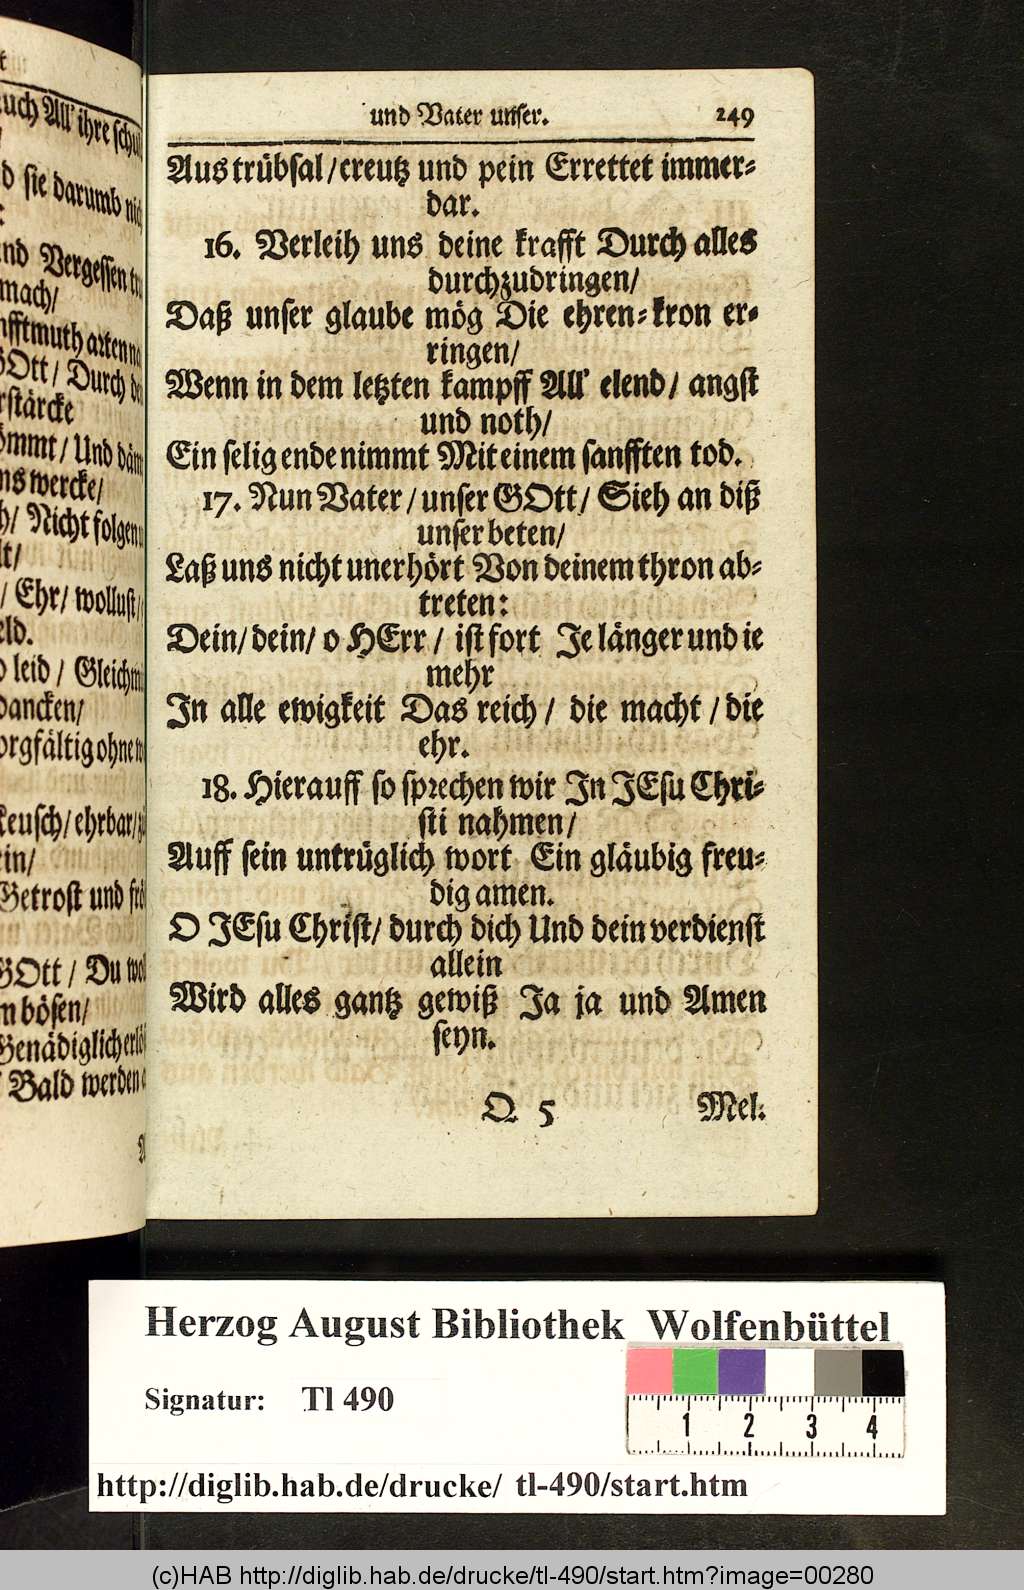 uch All' ihre
d sie darumb
nd Vergessen
mach/
GOtt / Durch
ömmt / Und
wercke/
h/ Nicht
/ Ehr/ wollust/
o leid / Gleich
keusch/ ehrbar/
Getrost und
GOtt / Du
m bösen/
Bald werden
und Vater unser. 249
Aus trübsal/creutz und pein Errettet immer-
dar.
16. Verleih uns deine krafft Durch alles
durchzudringen/
Daß unser glaube mög Die ehren-kron er-
ringen/
Wenn in dem letzten kampff All' elend/ angst
und noth/
Ein selig ende nimmt Mit einem sanfften tod.
17. Nun Vater / unser GOtt/ Sieh an diß
unser beten/
Laß uns nicht unerhört Von deinem thron ab-
treten:
Dein/ dein/ o HErr / ist fort Je länger und ie
mehr
In alle ewigkeit Das reich / die macht / die
ehr.
18. Hierauff so sprechen wir In JEsu Chri-
sti nahmen/
Auff sein untrüglich wort Ein gläubig freu-
dig amen.
O JEsu Christ/ durch dich Und dein verdienst
allein
Wird alles gantz gewiß Ja ja und Amen
seyn.
Q 5 Mel.
Herzog August Bibliothek Wolfenbüttel
Signatur: Tl 490
1 2 3 4
http://diglib.hab.de/drucke/ tl-490/start.htm
(c)HAB http://diglib.hab.de/drucke/tl-490/start.htm?image=00280